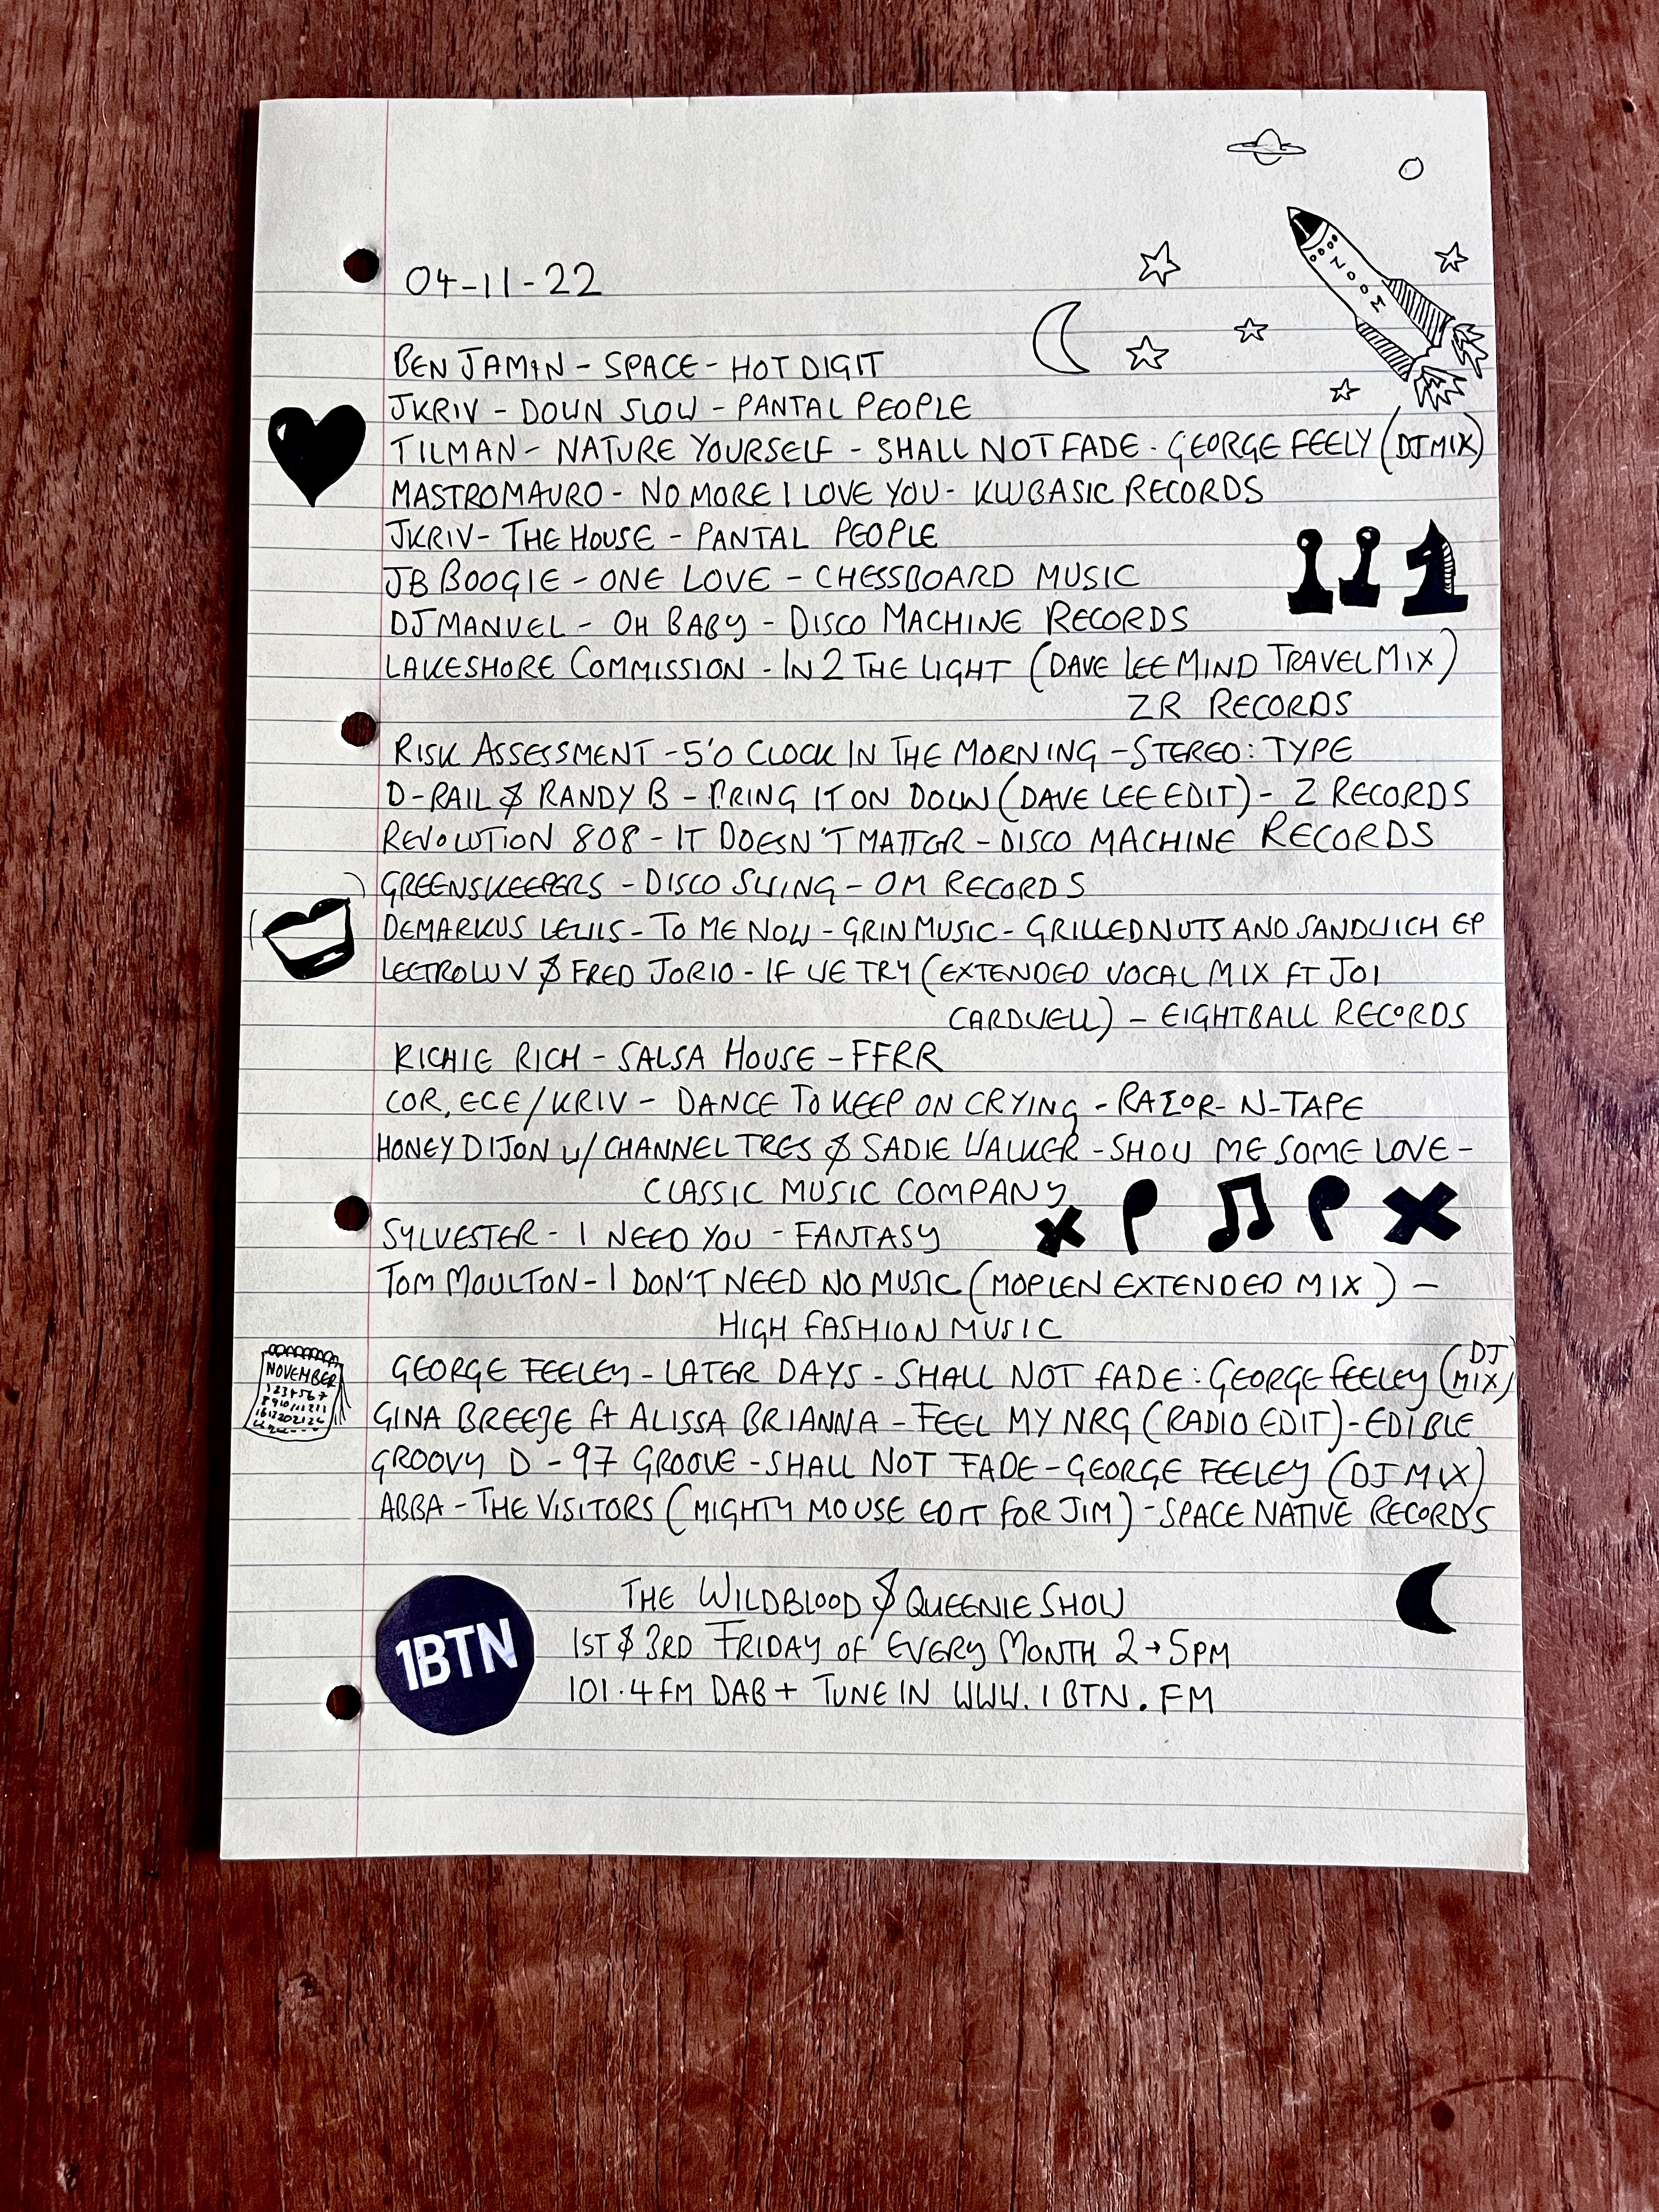 ZOOM
04-11-22
BENJAMIN - SPACE - HOT DIGIT
JKRIV - DOWN SLOW - PANTAL PEOPLE
TILMAN - NATURE YOURSELF - SHALL NOT FADE - GEORGE FEELY (DJ MIX)
MASTROMAURO - NO MORE I LOVE YOU - KWBASIC RECORDS
JKRIV - THE HOUSE - PANTAL PEOPLE
JB BOOGIE - ONE LOVE - CHESSBOARD MUSIC
DJ MANUEL - OH BABY - DISCO MACHINE RECORDS
LAKESHORE COMMISSION - IN 2 THE LIGHT (DAVE LEE MIND TRAVEL MIX)
ZR RECORDS
RISK ASSESSMENT - 5'O CLOCK IN THE MORNING - STEREO: TYPE
D-RAIL & RANDY B - BRING IT ON DOWN (DAVE LEE EDIT) - Z RECORDS
REVOLUTION 808 - IT DOESN'T MATTER - DISCO MACHINE RECORDS
GREENSKEEPERS - DISCO SWING - OM RECORDS
DEMARKUS LEWIS - TO ME NOW - GRIN MUSIC - GRILLED NUTS AND SANDWICH EP
LECTROLUV & FRED JORIO - IF WE TRY (EXTENDED VOCAL MIX FT JOI
CARDWELL) - EIGHTBALL RECORDS
RICHIE RICH - SALSA HOUSE - FFRR
COR.ECE/KRIV - DANCE TO KEEP ON CRYING - RAZOR-N-TAPE
HONEY DIJON W/ CHANNEL TRES & SADIE WALKER - SHOW ME SOME LOVE -
CLASSIC MUSIC COMPANY
SYLVESTER - I NEED YOU - FANTASY
TOM MOULTON - I DON'T NEED NO MUSIC (MOPLEN EXTENDED MIX) -
HIGH FASHION MUSIC
NOVEMBER
GEORGE FEELEY - LATER DAYS - SHALL NOT FADE: GEORGE FEELEY (DJ MIX)
GINA BREEZE ft ALISSA BRIANNA - FEEL MY NRG (RADIO EDIT) - EDIBLE
GROOVY D - 97 GROOVE - SHALL NOT FADE - GEORGE FEELEY (DJ MIX)
ABBA - THE VISITORS (MIGHTY MOUSE EDIT FOR JIM) - SPACE NATIVE RECORDS
1BTN
THE WILDBLOOD & QUEENIE SHOW
1ST & 3RD FRIDAY OF EVERY MONTH 2→5PM
101.4FM DAB + TUNE IN WWW.1BTN.FM